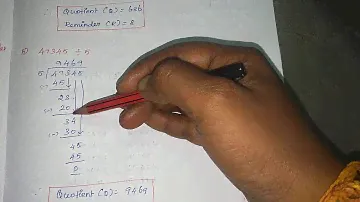 ∴ Quotient (Q) = 686
Reminder (R) = 8
47345 ÷ 5
9464
5) 47345
45
23
20
34
30
45
45
0
∴ Quotient (Q) = 9464